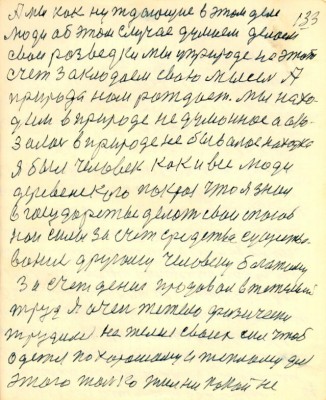 133
А мы как нуждающие в этом деле
люди об этом случае думаем делаем
свои разведки мы природе на этот
счет закладаем свою мысль А
природа нам рождает. Мы нахо-
дим в природе не думоное а ска-
залас в природе не бывалое находка
Я был человек как и все люди
деревенского покроя что я знал
в государстве делать свои способ
ности силы за счет средства существо
вание другому человеку богатому
За счет деняг продовал в тяжелый
труд Я очен тяжело физически
трудился на темя своих сил чтоб
одется по хорошому и теплому для
этого только жизни покой не